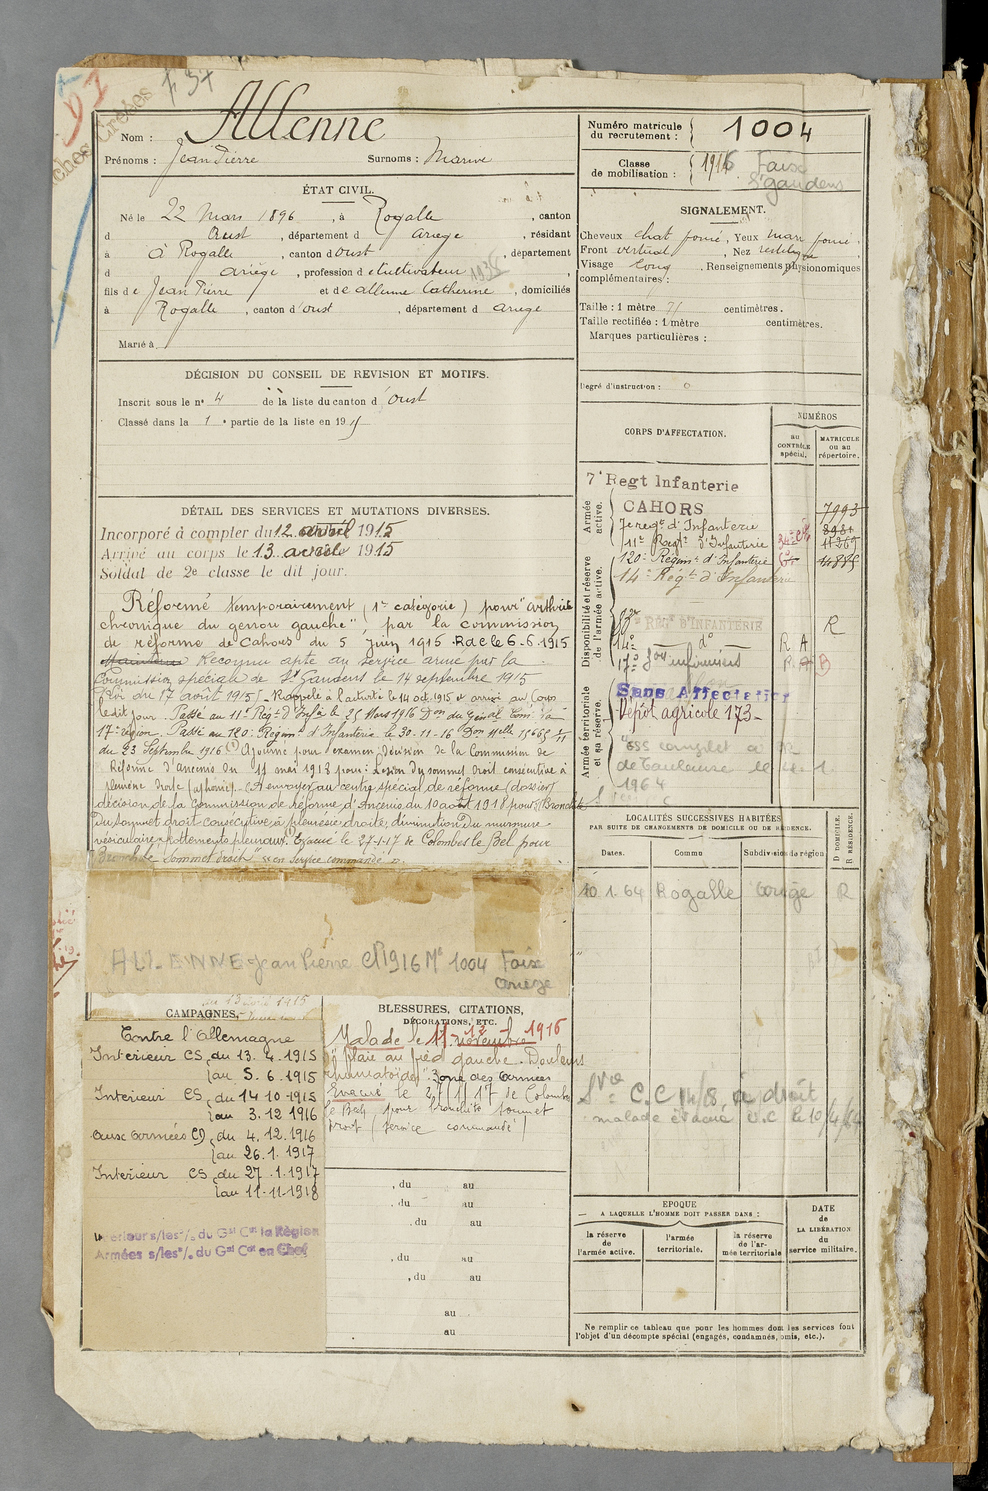 Allenne
Nom :
Prénoms : Jean Pierre Surnoms :
ÉTAT CIVIL.
Né le 22 Mars 1896, à Rogalle, canton
d Oust, département d Ariège, résidant
à à Rogalle, canton d'oust, département
d ariège, profession de cultivateur
fils de Jean Pierre et de allenne Catherine, domiciliés
à Rogalle, canton d'oust, département d ariege
Marié à
DÉCISION DU CONSEIL DE REVISION ET MOTIFS.
Inscrit sous le n° 4 de la liste du canton d'oust
Classé dans la 1e partie de la liste en 1915
DÉTAIL DES SERVICES ET MUTATIONS DIVERSES.
Incorporé à compter du 12 avril 1915
Arrivé au corps le 13 avril 1915
Soldat de 2e classe le dit jour.
Réformé temporairement (1re catégorie) pour "arthrite
chronique du genou gauche" par la commission
de réforme de Cahors du 5 juin 1915. R.d.c le 6.6.1915
Reconnu apte au service armé par la
Commission spéciale de St Gaudens le 14 septembre 1915
(Loi du 17 août 1915). Rappelé à l'activité le 14 oct. 1915 et arrivé au Corps
ledit jour. Passé au 11e Régt d'Infie le 25 Mars 1916 Don du Génal Comt la
17e région. Passé au 120e Régimt d'Infanterie le 30-11-16
du 23 Septembre 1916 (1) Ajourné pour examen, décision de la Commission de
Réforme d'Ancenis du 11 mai 1918 pour : Lésion du sommet droit consécutive à
pleurésie droite (aphonie). A envoyer au centre spécial de réforme (dossier)
décision de la Commission de réforme d'Ancenis du 10 août 1918 pour Bronchite
du sommet droit consécutive à pleurésie droite, diminution du murmure
vésiculaire, frottements pleuraux. (1) Evacué le 27-1-17 de Colombes le Bel pour
Bronchite Sommet droit "en service commandé".
ALLENNE Jean Pierre Cl 1916 Mle 1004 Foix
Ariège
CAMPAGNES.
Contre l'Allemagne
Intérieur CS du 13. 4. 1915
au 5. 6. 1915
Intérieur CS du 14-10-1915
au 3. 12 1916
aux armées CD du 4. 12. 1916
au 26. 1. 1917
Intérieur CS du 27. 1. 1917
au 11-11-1918
Intérieur s/les o/. du Gal Ct la Région
Armées s/les o/. du Gal Ct en Chef
BLESSURES, CITATIONS,
DÉCORATIONS, ETC.
Malade le 17 novembre 1916
plaie au pied gauche. Douleurs
rhumatoïdes. Zone des armées
Evacué le 27/1/17 de Colombes
le Bel pour bronchite sommet
droit (service commandé)
, du au
, du au
, du au
, du au
, du au
au
au
Numéro matricule
du recrutement : 1004
Classe
de mobilisation : 1916 Foix
St gaudens
SIGNALEMENT.
Cheveux chat foncé, Yeux marr foncé.
Front vertical, Nez rectiligne
Visage long, Renseignements physionomiques
complémentaires :
Taille : 1 mètre 71 centimètres.
Taille rectifiée : 1 mètre centimètres.
Marques particulières :
Degré d'instruction :
CORPS D'AFFECTATION.
NUMÉROS
au
CONTRÔLE
spécial.
MATRICULE
ou au
répertoire.
Armée
active.
7e Regt Infanterie
CAHORS 7993
7e regt d'Infanterie
11e Regt d'Infanterie 11269
120e Régimt d'Infanterie
14e Régt d'Infanterie
Disponibilité et réserve
de l'armée active.
RÉGt D'INFANTERIE R
14e do R A
17e Son infirmiers
Armée territoriale
et sa réserve.
Sans Affectation
Dépot agricole 173
de Toulouse le
1964
LOCALITÉS SUCCESSIVES HABITÉES
PAR SUITE DE CHANGEMENTS DE DOMICILE OU DE RÉSIDENCE.
Dates. Commu Subdivision de région D DOMICILE. R RÉSIDENCE.
10. 1. 64 Rogalle ariège R
C.C 14/18 à droit
malade évacué U.C le 10/4/64
EPOQUE
A LAQUELLE L'HOMME DOIT PASSER DANS :
la réserve
de
l'armée active.
l'armée
territoriale.
la réserve
de l'ar-
mée territoriale
DATE
de
LA LIBÉRATION
du
service militaire.
Ne remplir ce tableau que pour les hommes dont les services font
l'objet d'un décompte spécial (engagés, condamnés, omis, etc.).